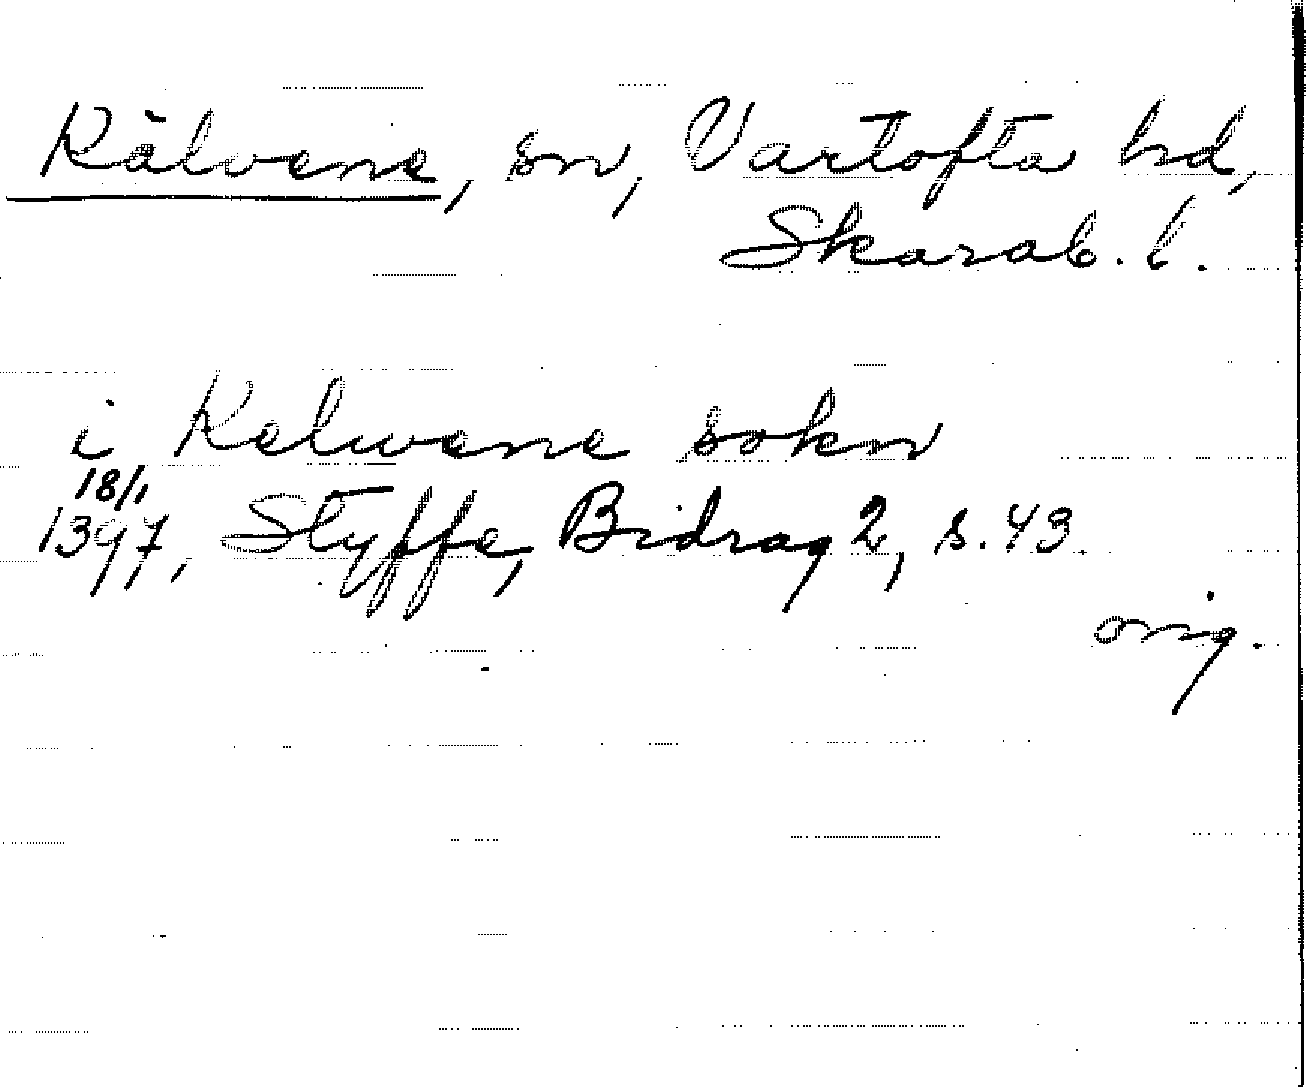 Kälvene, sn, Vartofta hd,
Skarab. l.
i Kelwene sokn
18/1
1397, Styffe, Bidrag 2, s. 43.
orig.